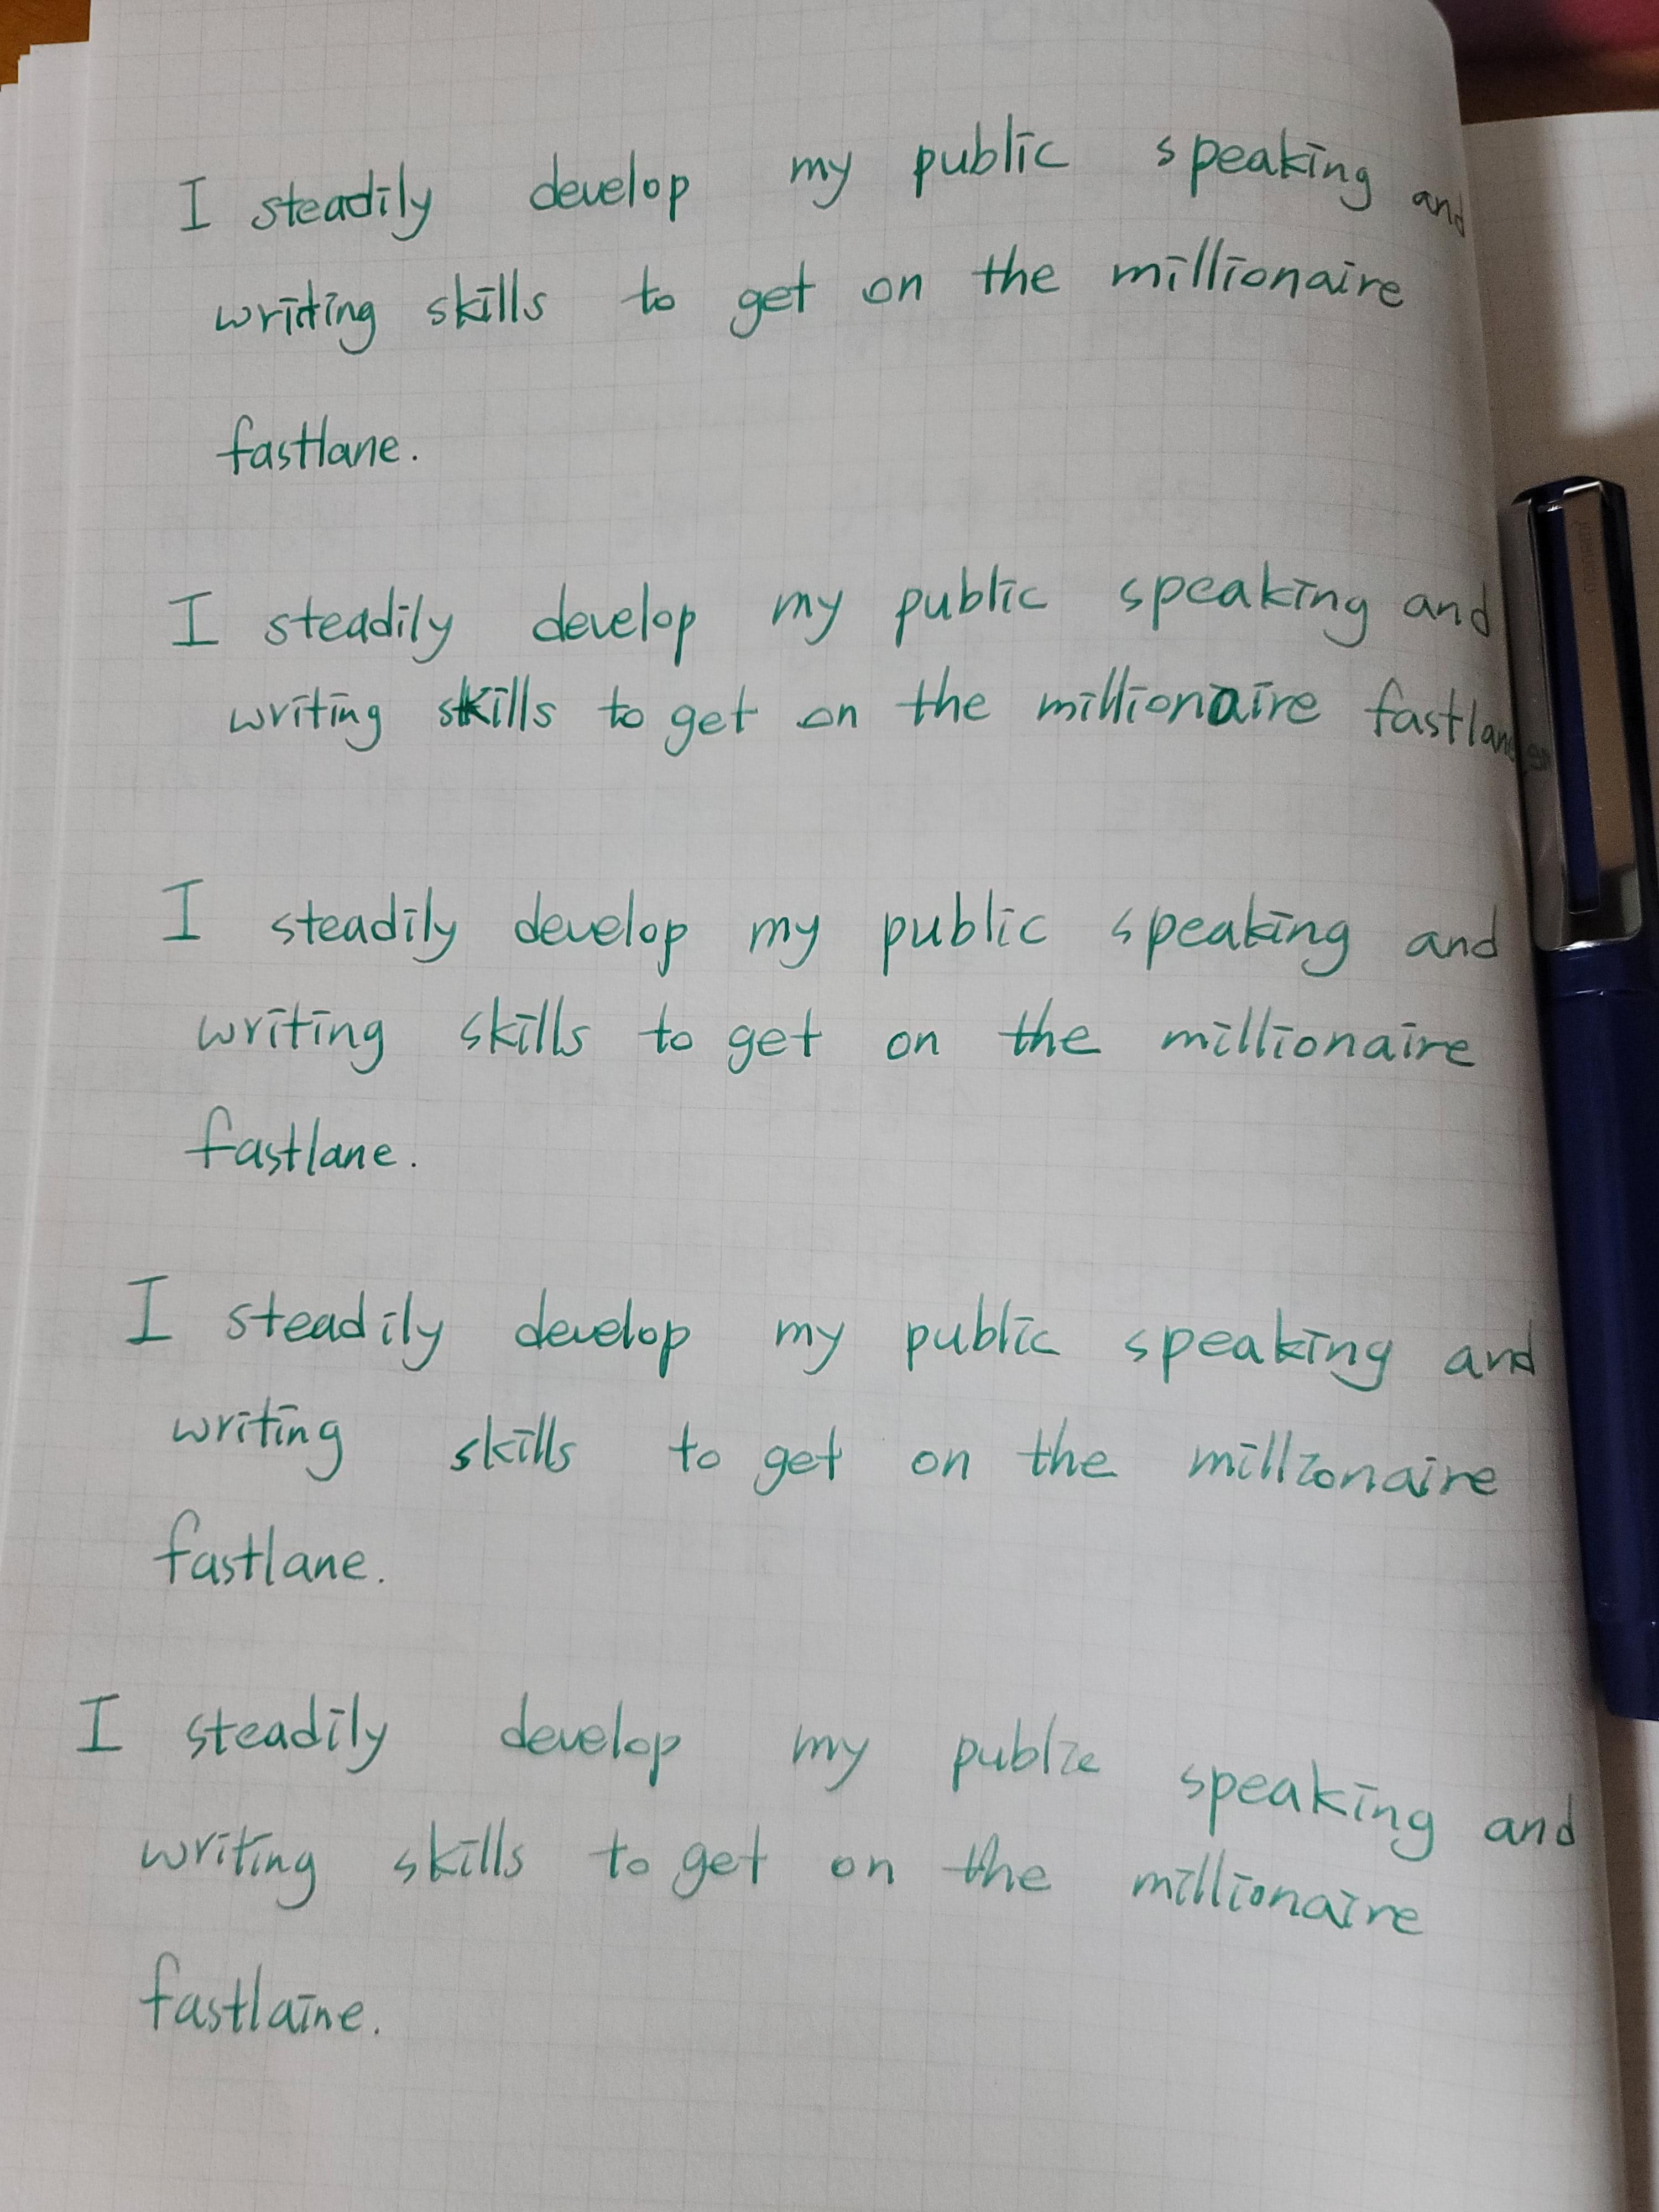 I steadily develop my public speaking and
writing skills to get on the millionaire
fastlane.
I steadily develop my public speaking and
writing skills to get on the millionaire fastlane
I steadily develop my public speaking and
writing skills to get on the millionaire
fastlane.
I steadily develop my public speaking and
writing skills to get on the millionaire
fastlane.
I steadily develop my public speaking and
writing skills to get on the millionaire
fastlaine.